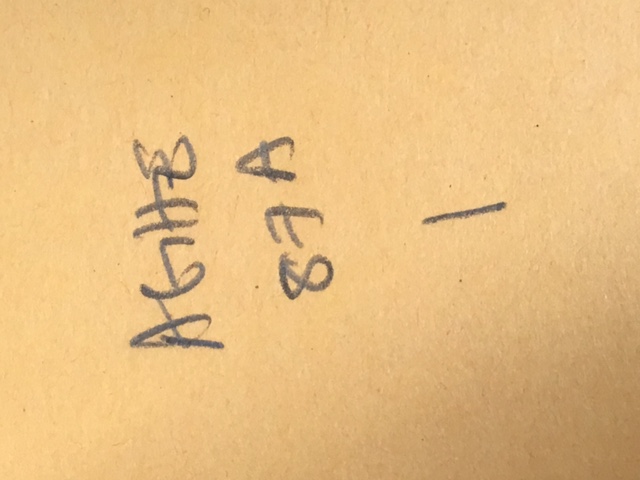 AGHE
87A
1